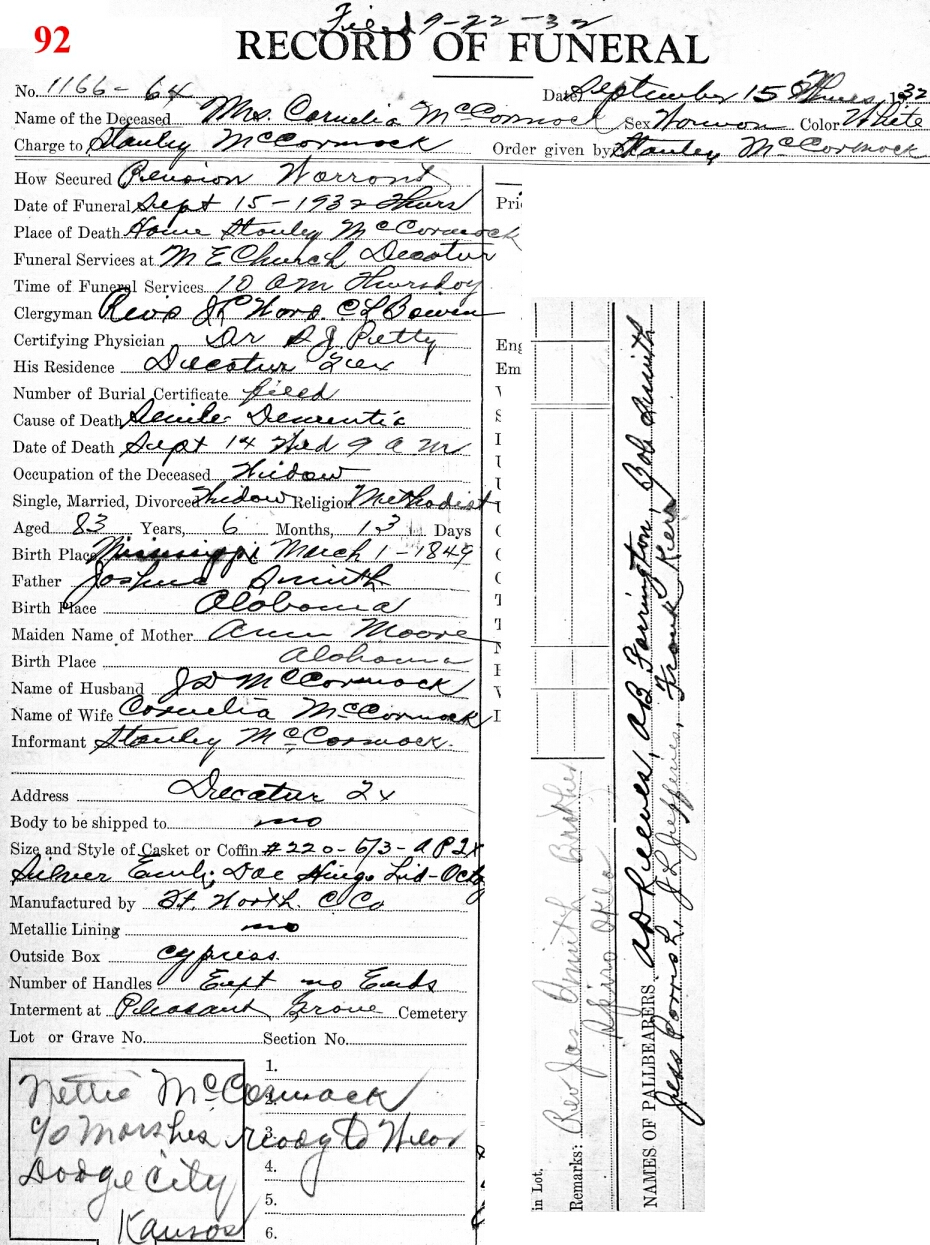 Filed 9-22-32
92
RECORD OF FUNERAL
No. 1166-64 Date September 15 Thurs, 1932
Name of the Deceased Mrs. Cornelia McCormack Sex Woman Color White
Charge to Stanley McCormack Order given by Stanley McCormack
How Secured Pension Warrant
Date of Funeral Sept 15-1932 Thurs
Place of Death Home Stanley McCormack
Funeral Services at M E Church Decatur
Time of Funeral Services 10 am Thursday
Clergyman Revs Ward. C L Bowen
Certifying Physician Dr S J Petty
His Residence Decatur Tex
Number of Burial Certificate filed
Cause of Death Senile Dementia
Date of Death Sept 14 Wed 9 a m
Occupation of the Deceased Widow
Single, Married, Divorced Widow Religion Methodist
Aged 83 Years, 6 Months, 13 Days
Birth Place Mississippi March 1-1849
Father Joshua Smith
Birth Place Alabama
Maiden Name of Mother Ann Moore
Birth Place Alabama
Name of Husband J D McCormack
Name of Wife Cornelia McCormack
Informant Stanley McCormack.
Address Decatur Tx
Body to be shipped to no
Size and Style of Casket or Coffin #220-6/3-
Silver Hinge Lid-Octg
Manufactured by Ft. Worth C Co
Metallic Lining no
Outside Box cypress
Number of Handles Ext no Ends
Interment at Pleasant Grove Cemetery
Lot or Grave No. Section No.
1.
2.
3.
4.
5.
6.
Nettie McCormack
c/o Marshes ready to Wear
Dodge City
Kansas
Pri
Eng
Em
in Lot.
Remarks: Rev Jas Smith Brother
Spiro Okla
NAMES OF PALLBEARERS A D Reeves, A B Farrington, Bob Smith
Jess Morris L, J L Jefferies, Frank Kerr